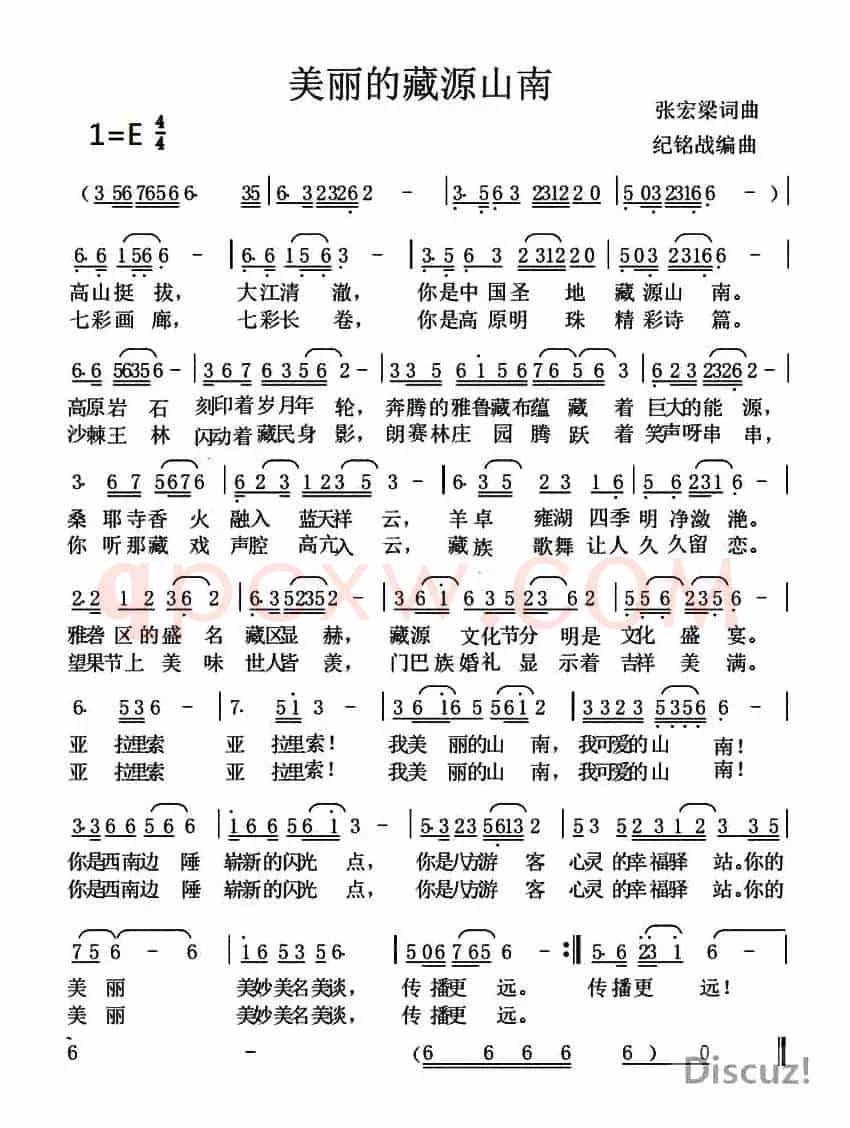 美丽的藏源山南
张宏梁词曲
1=E 4/4
纪铭战编曲
(3 567656 6· 35 | 6·3 23262 - | 3·563 231220 | 503 23166 -)|
6·6 1566 - | 6·6 1563 - | 3·563 231220 | 503 23166 - |
高山挺拔, 大江清澈, 你是中国圣地藏源山南。
七彩画廊, 七彩长卷, 你是高原明珠精彩诗篇。
6·6 56356 - | 367 6356 2 - | 335 6156 765 63 | 623 23262 - |
高原岩石刻印着岁月年轮, 奔腾的雅鲁藏布蕴藏着巨大的能源,
沙棘王林闪动着藏民身影, 朗赛林庄园腾跃着笑声呀串串,
3· 67 5676 | 623 1235 3 - | 6·35 23 16 | 56 231 6 - |
桑耶寺香火融入蓝天祥云, 羊卓雍湖四季明净潋滟。
你听那藏戏声腔高亢入云, 藏族歌舞让人久久留恋。
2·2 12 36 2 | 6·352352 - | 361 6352362 | 567 6 2356 - |
雅砻区的盛名藏区显赫, 藏源文化节分明是文化盛宴。
望果节上美味世人皆羡, 门巴族婚礼显示着吉祥美满。
6· 536 - | 7· 513 - | 36 165 5612 | 3323 5356 6 - |
亚拉里索 亚拉里索! 我美丽的山南, 我可爱的山南!
亚拉里索 亚拉里索! 我美丽的山南, 我可爱的山南!
3·366 566 | 166 561 3 - | 5·323 56132 | 53 5231 2 323 |
你是西南边陲崭新的闪光点, 你是八方游客心灵的幸福驿站。你的
你是西南边陲崭新的闪光点, 你是八方游客心灵的幸福驿站。你的
756 - 6 | 165356· | 506 7656 - :‖ 5·6 23 1 6 |
美丽 美妙美名美谈, 传播更远。 传播更远!
美丽 美妙美名美谈, 传播更远。
6 - (6 666 6) 0 ‖
qpcxw.COM
Discuz!